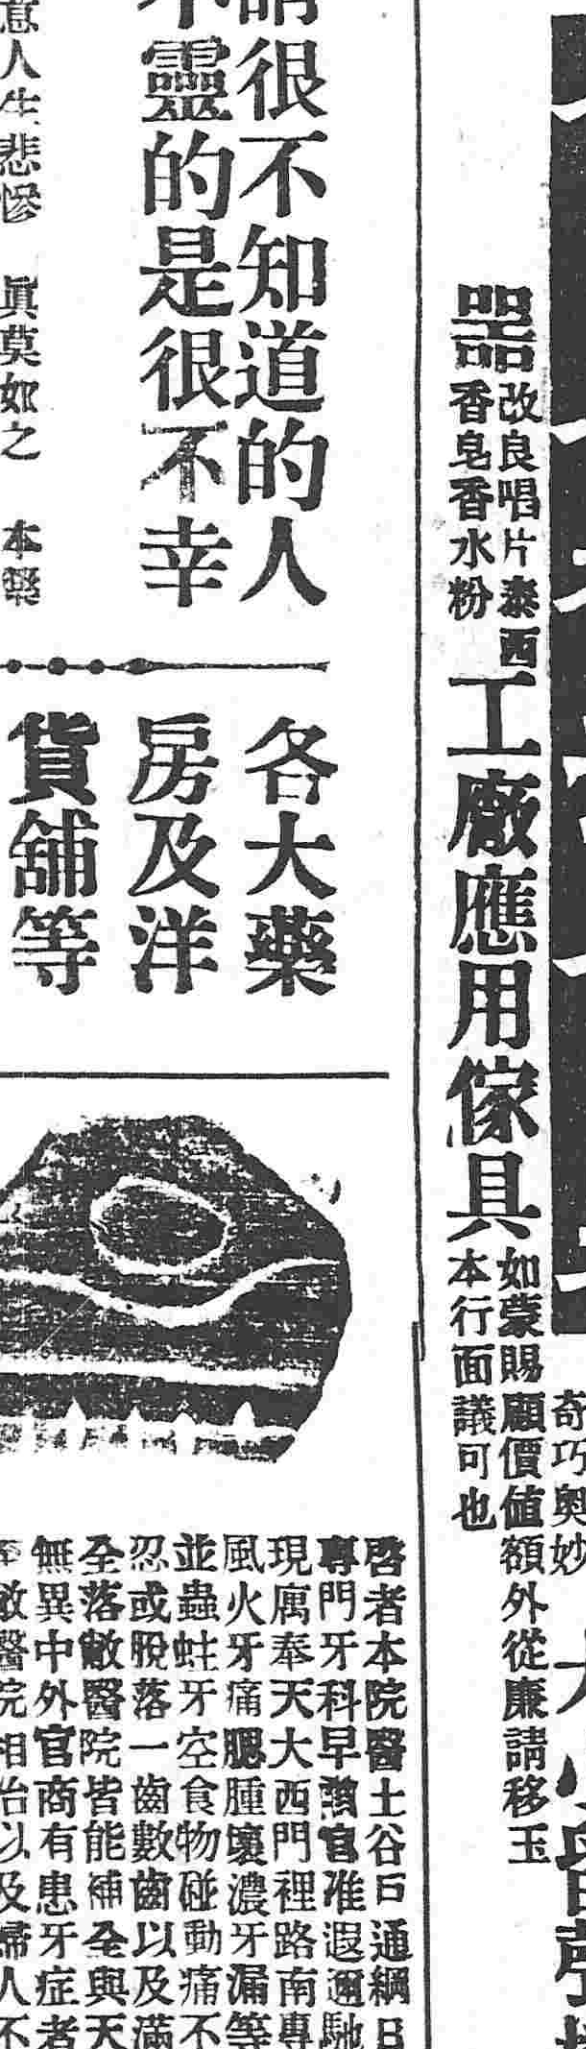 奇巧奧妙
器
改良唱片泰西
香皂香水粉
工廠應用傢具
如蒙賜顧價値額外從廉請移玉
本行面議可也
很不知道的人
不靈的是很不幸
意人生悲慘 眞莫如之 本藥
各大藥
房及洋
貨舖等
啓者本院醫士谷戶通綱日
專門牙科早蒙官准遐邇馳
現厲奉天大西門裡路南專
風火牙痛腮腫壞濃牙漏等
並蟲蛀牙空食物碰動痛不
忍或脫落一齒數齒以及滿
全落敝醫院皆能補全與天
無異中外官商有患牙症者
敝醫院相治以及婦人不